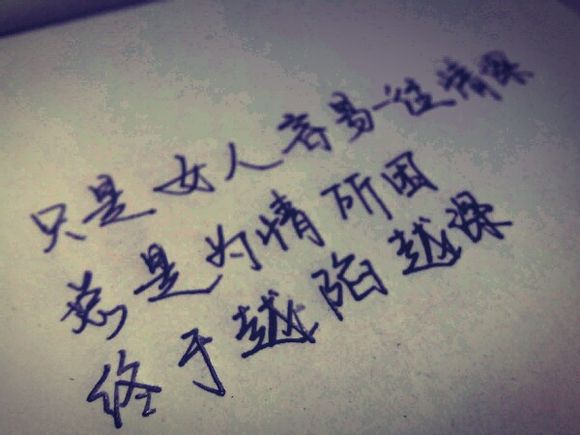 只是女人容易一往情深
总是为情所困
终于越陷越深